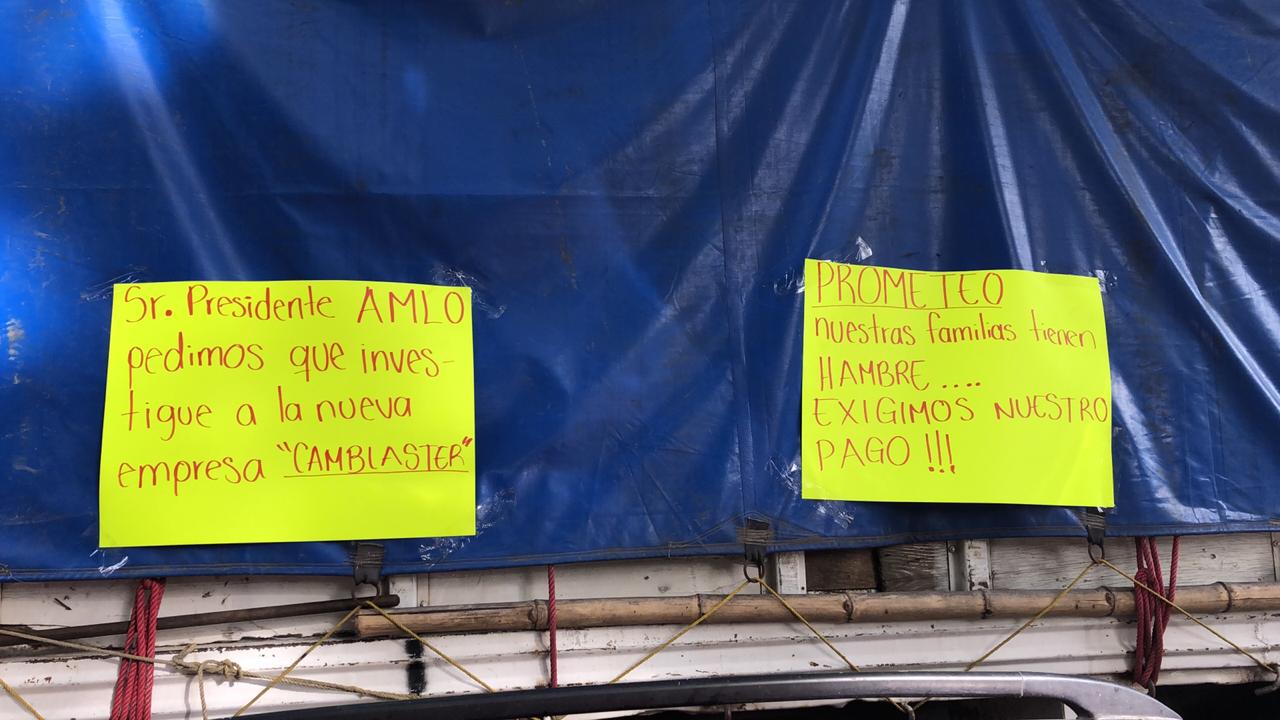 Sr. Presidente AMLO
pedimos que inves-
tigue a la nueva
empresa "CAMBLASTER"
PROMETEO
nuestras familias tienen
HAMBRE ....
EXIGIMOS NUESTRO
PAGO !!!